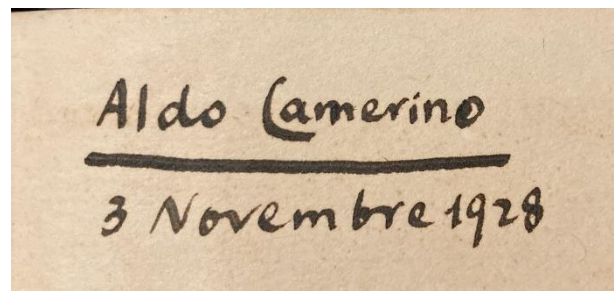 Aldo Camerino
3 Novembre 1928